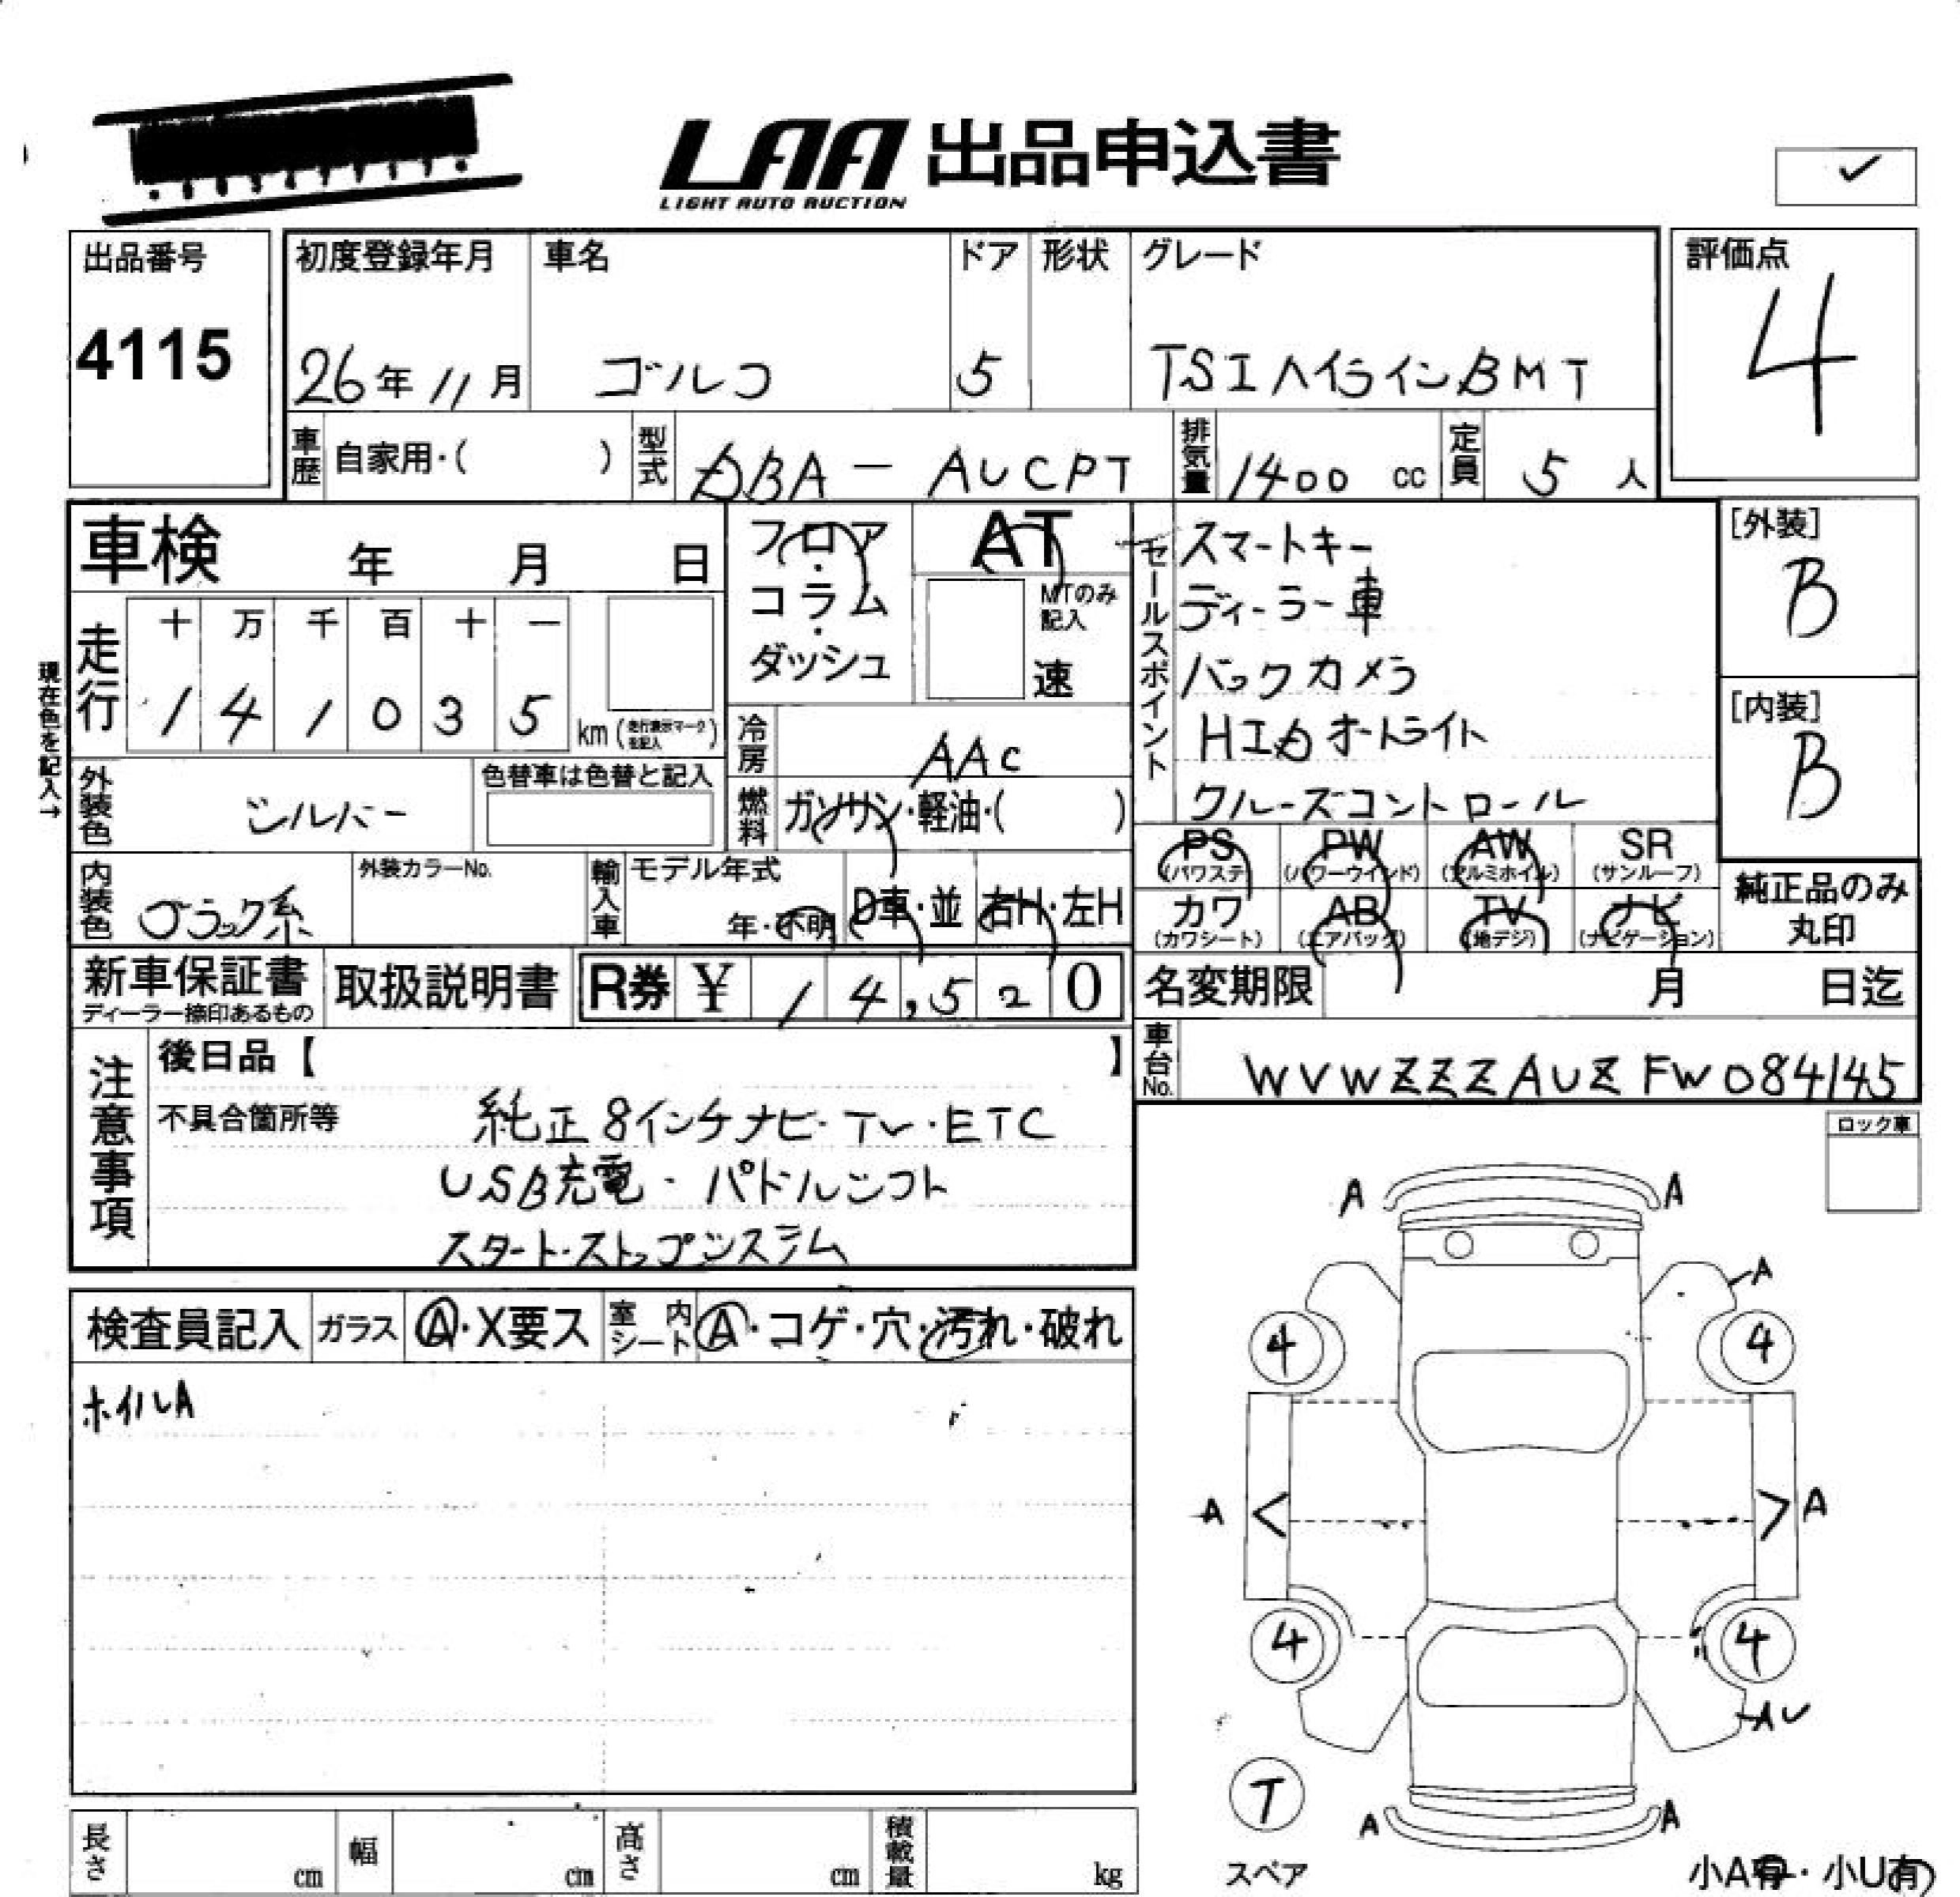 LAA 出品申込書
LIGHT AUTO AUCTION
✓
出品番号 4115
初度登録年月 26年11月
車名 ゴルフ
ドア 5
形状
グレード TSIハイラインBMT
評価点 4
車歴 自家用・( )
型式 DBA-AUCPT
排気量 1400 cc
定員 5 人
車検 年 月 日
フロア・コラム・ダッシュ
AT
MTのみ記入
速
セールスポイント
スマートキー
ディーラー車
バックカメラ
HIDオートライト
クルーズコントロール
[外装] B
[内装] B
現在色を記入→
走行 十 万 千 百 十 一
1 4 1 0 3 5 km (走行表示マークを記入)
冷房 AAC
外装色 シルバー
色替車は色替と記入
燃料 ガソリン・軽油・( )
PS (パワステ) PW (パワーウインド) AW (アルミホイル) SR (サンルーフ)
カワ (カワシート) AB (エアバッグ) TV (地デジ) ナビ (ナビゲーション)
純正品のみ丸印
内装色 ブラック系
外装カラーNo.
輸入車 モデル年式 年・不明 D車・並 右H・左H
新車保証書 ディーラー捺印あるもの
取扱説明書
R券 ¥ 14,520
名変期限 月 日迄
車台No. WVWZZZAUZFW084145
注意事項
後日品【 】
不具合箇所等 純正8インチナビ・TV・ETC
USB充電・パドルシフト
スタート・ストップシステム
ロック車
検査員記入 ガラス A・X要ス 室内シート A・コゲ・穴・汚れ・破れ
ホイルA
A A
A
4 4
A < > A
4 4
AU
T
スペア
A A
小A有・小U有
長さ cm 幅 cm 高さ cm 積載量 kg